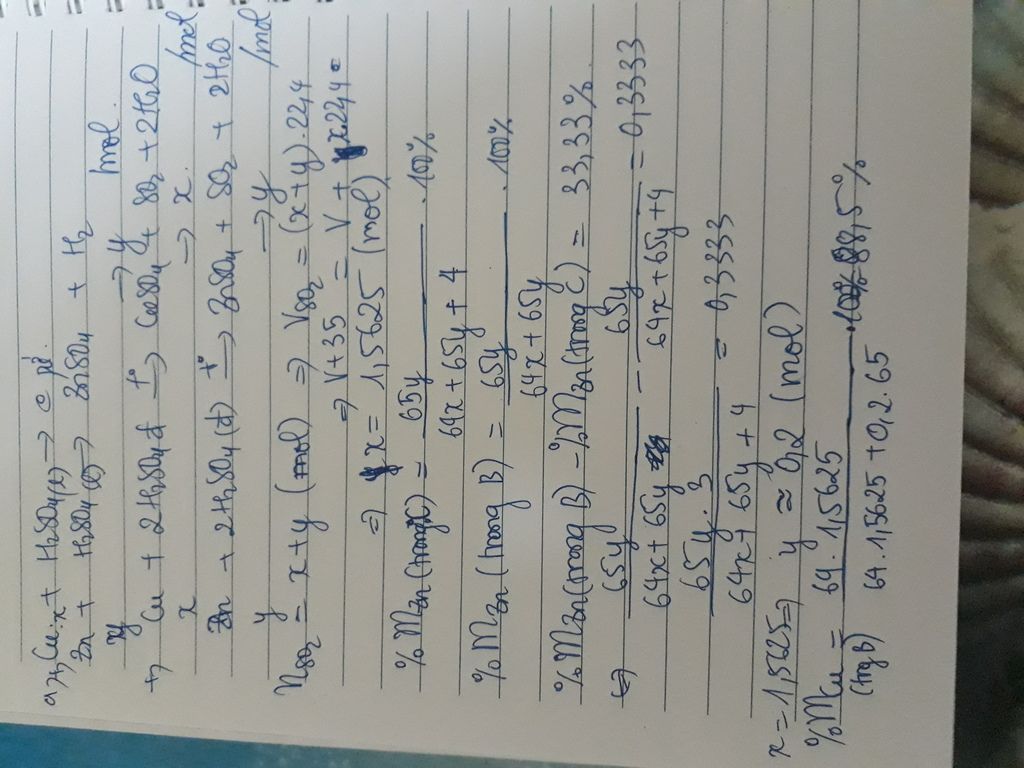 a, +, Cu + H₂SO₄(l) → 
Zn + H₂SO₄(l) → ZnSO₄ + H₂
y → y mol
+, Cu + 2H₂SO₄đ t°→ CuSO₄ + SO₂ + 2H₂O
x → x mol
Zn + 2H₂SO₄(đ) t°→ ZnSO₄ + SO₂ + 2H₂O
y → y mol
nSO₂ = x+y (mol) ⇒ VSO₂ = (x+y).22,4
⇒ V+35 = V + x.22,4
⇒ x = 1,5625 (mol)
%mZn(trong C) = 65y / (64x + 65y + 4) . 100%
%mZn (trong B) = 65y / (64x + 65y) . 100%
%mZn(trong B) - %mZn(trong C) = 33,33%
⇔ 65y / (64x + 65y) - 65y / (64x + 65y + 4) = 0,3333
65y . 3 / (64x + 65y + 4) = 0,3333
x = 1,5625 ⇒ y ≈ 0,2 (mol)
%mCu (trg B) = 64 . 1,5625 / (64.1,5625 + 0,2.65) .100% = 88,5%